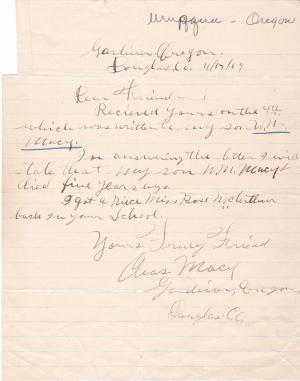 Umpqua - Oregon
Gardiner, Oregon.
Douglas, Co. 11/17/09
Dear Friend :
Recieved Yours on the 4th.
which was written to my son W.W.
Macy.
In answering the letter I will
state that my son W.W. Macy
died five years ago
I got a Niece Miss Rose McArthur
back in your School.
Yours Truly Friend
Macy
Gardiner, Oregon,
Douglas Co,